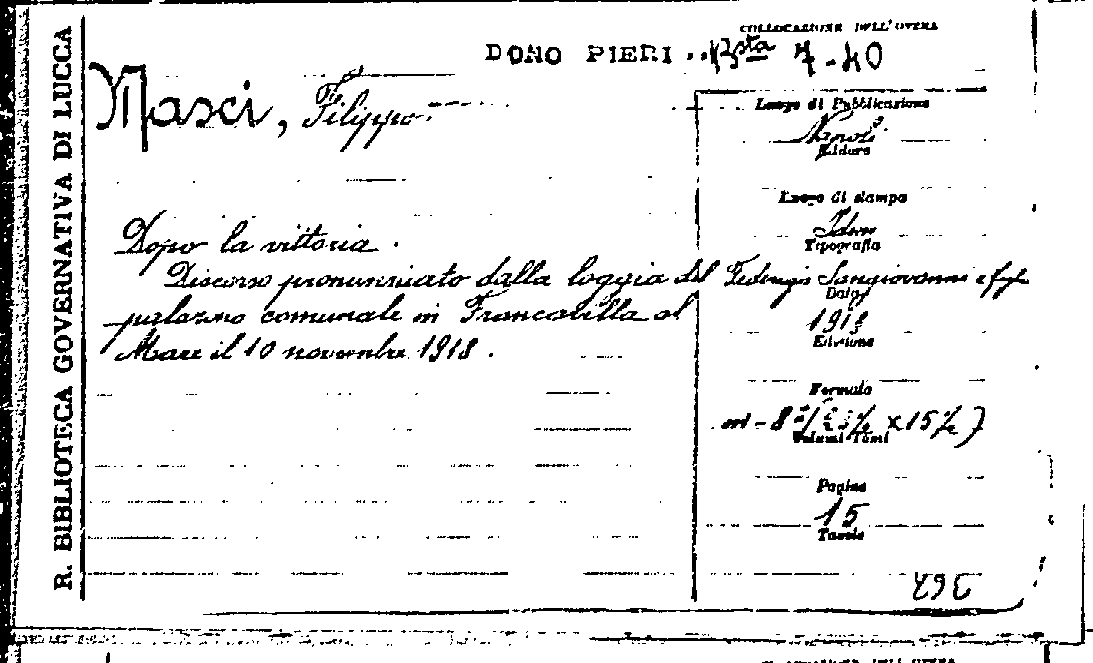 R. BIBLIOTECA GOVERNATIVA DI LUCCA
COLLOCAZIONE DELL'OPERA
DONO PIERI .. Bsta 7-40
Masci, Filippo.
Dopo la vittoria.
Discorso pronunziato dalla loggia del
palazzo comunale in Francavilla al
Mare il 10 novembre 1918.
Luogo di Pubblicazione
Napoli
Editore
Luogo di stampa
Idem
Tipografia
Federigo Sangiovanni e figli
Data
1918
Edizione
Formato
in-8° x 15 ½)
Volumi Tomi
Pagine
15
Tavole